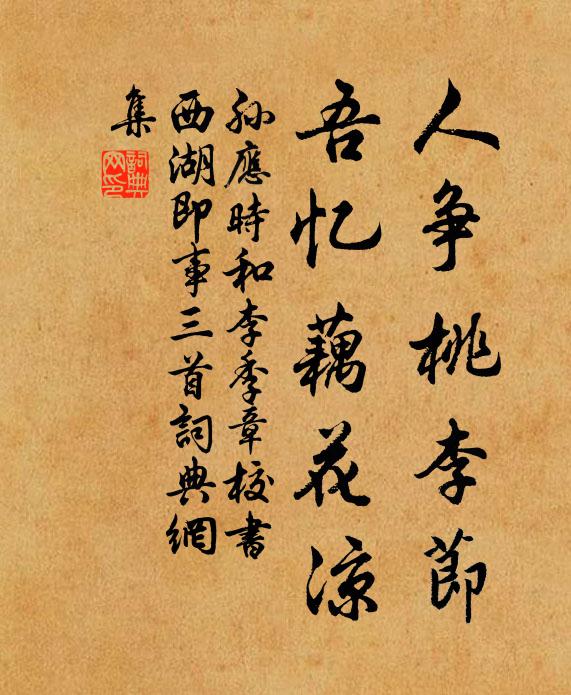 人争桃李節
吾忆藕花涼
孙應時和李季章校書
西湖即事三首詞典網
集
詞典
网印